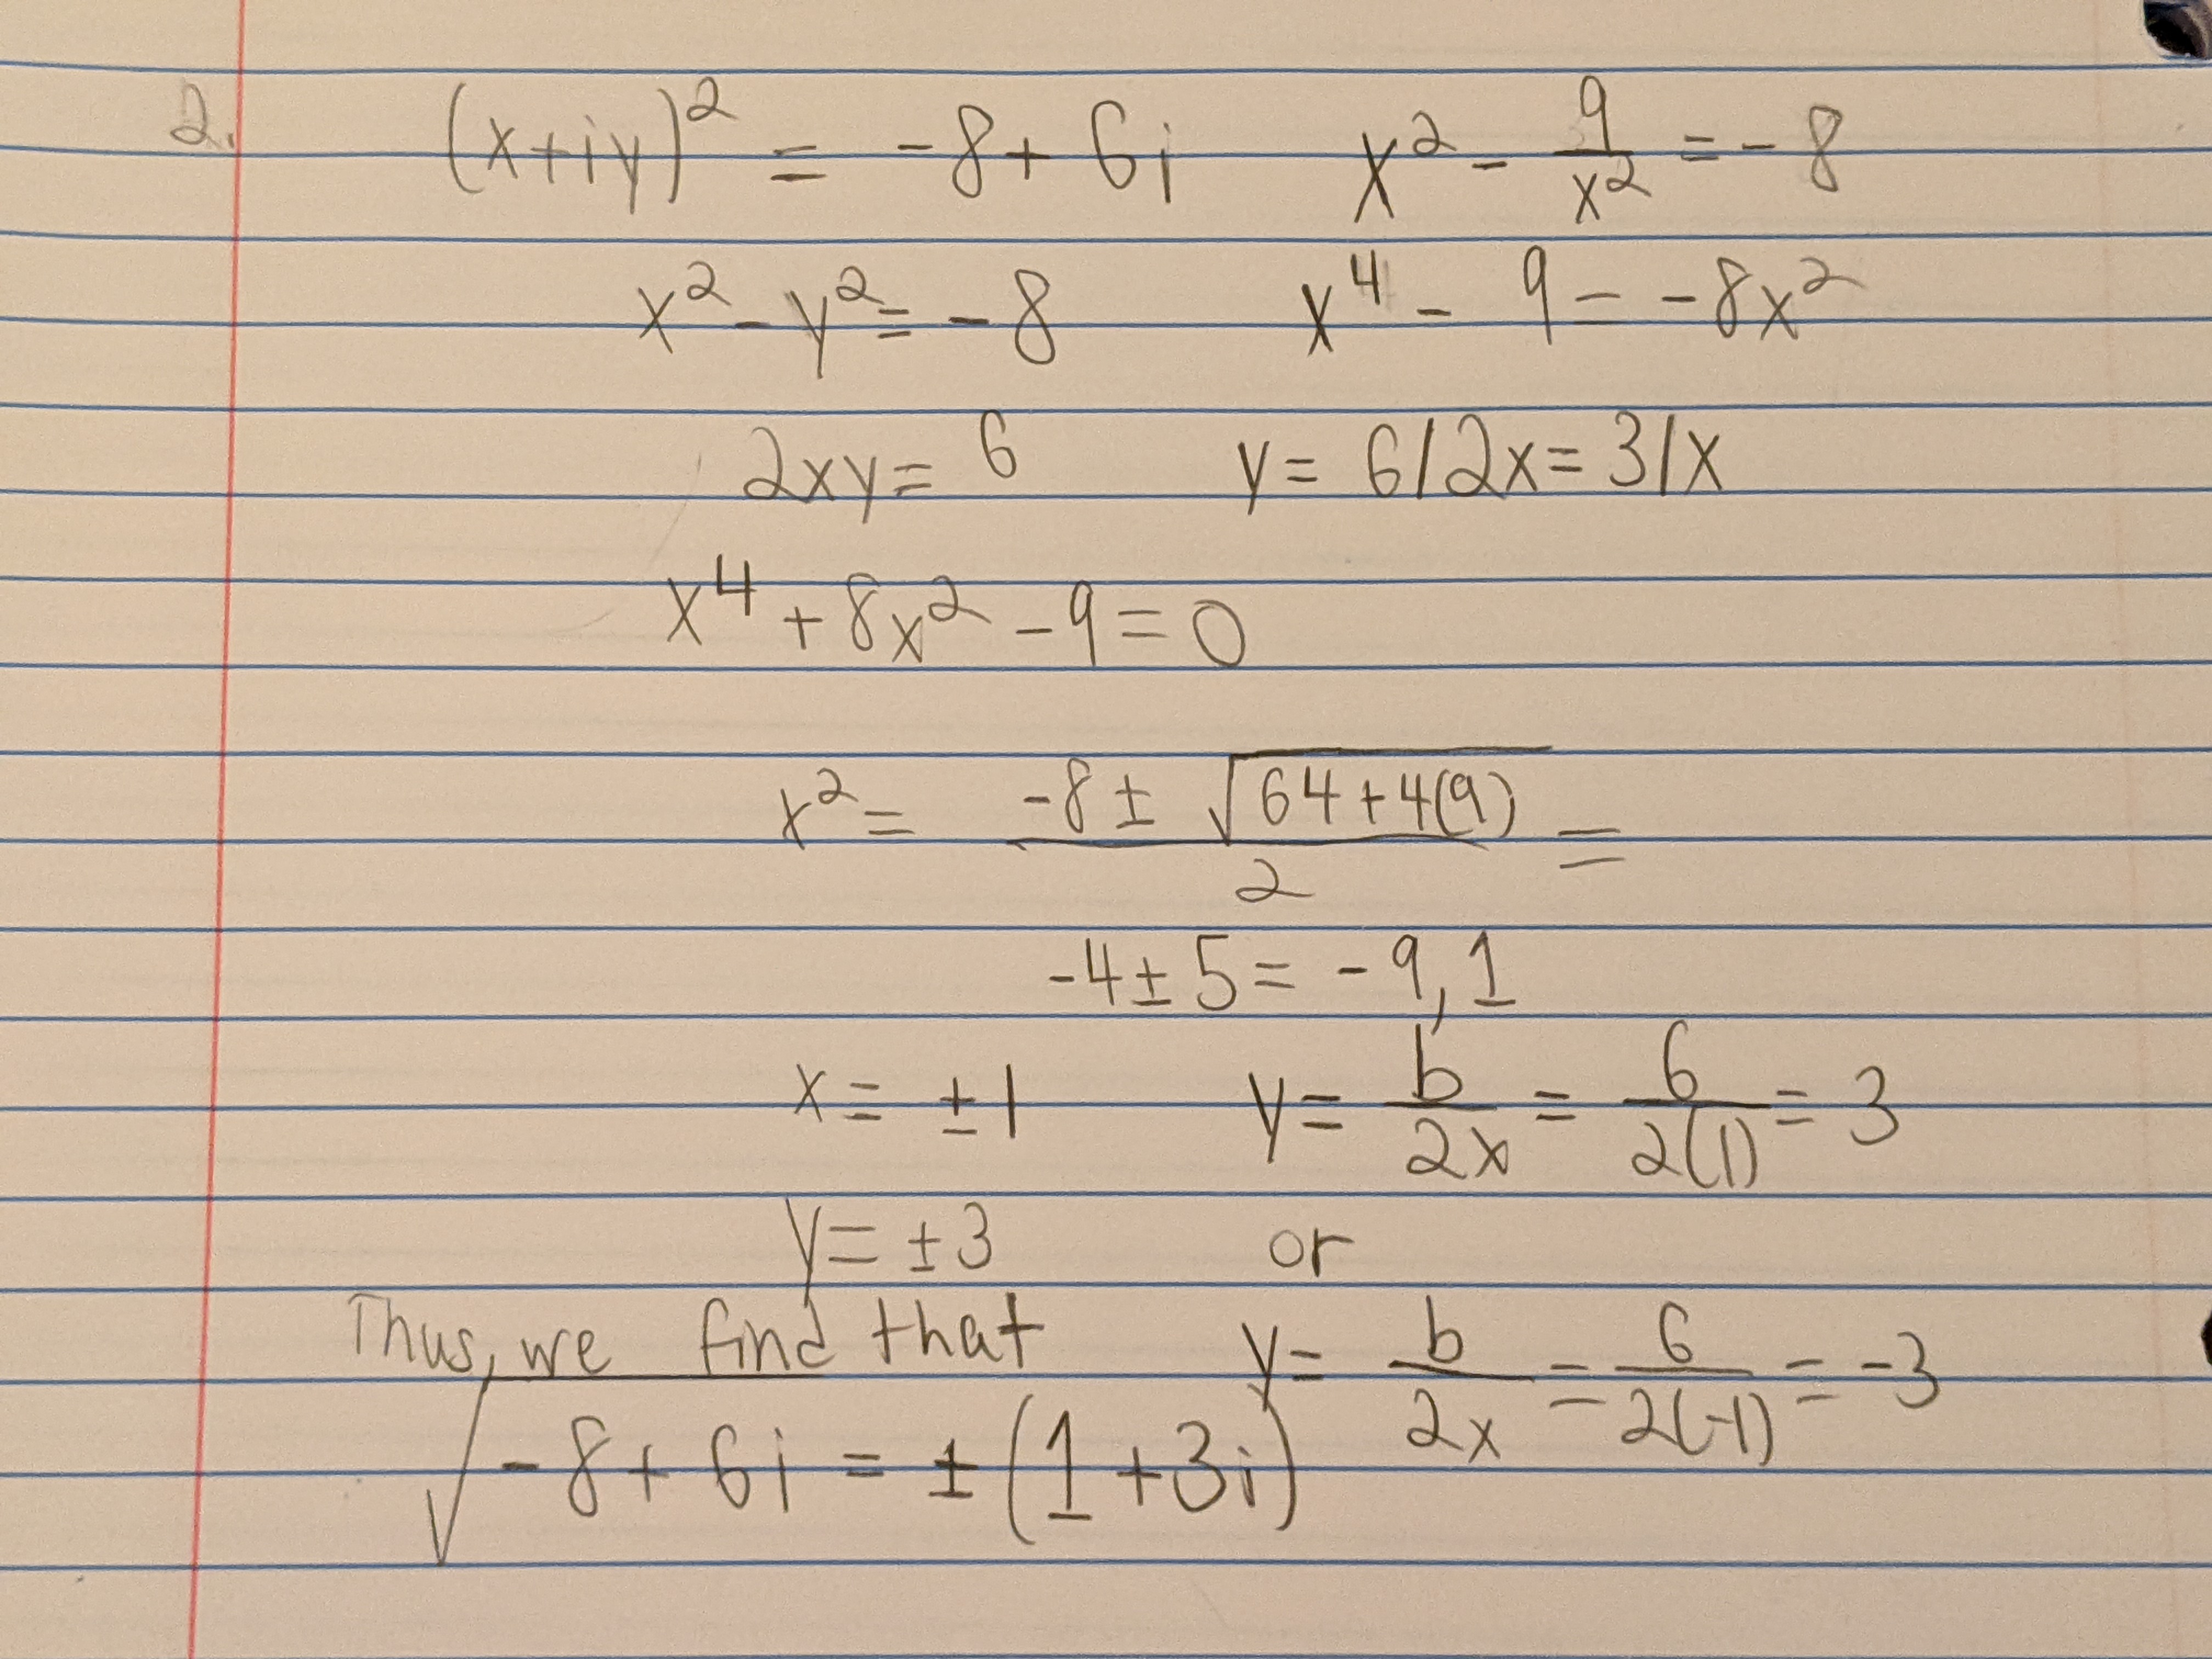 2. (x+iy)² = -8+6i x² - 9/x² = -8
x² - y² = -8 x⁴ - 9 = -8x²
2xy = 6 y = 6/2x = 3/x
x⁴ + 8x² - 9 = 0
x² = (-8 ± √(64+4(9)))/2 =
-4 ± 5 = -9, 1
x = ±1 y = b/2x = 6/2(1) = 3
y = ±3 or
Thus, we find that y = b/2x = 6/2(-1) = -3
√(-8+6i) = ±(1+3i)